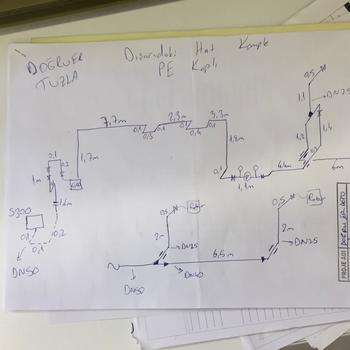 DOĞRUER
TUZLA
Dışarıdaki Hat Komple
PE Kaplı
0,5
1,1
DN25
7,7m
0,1
0,3
2,3m
0,1
0,4
3,3m
0,1
1,2
1,4
1,8m
0,1
0,2
1,7m
1m
0,1
1,1m
4m
6m
S300
0,1
0,1
0,2
DN50
0,5
2m
DN25
0,5
2m
DN25
6,5m
DN50
DN40
PROJE ADI